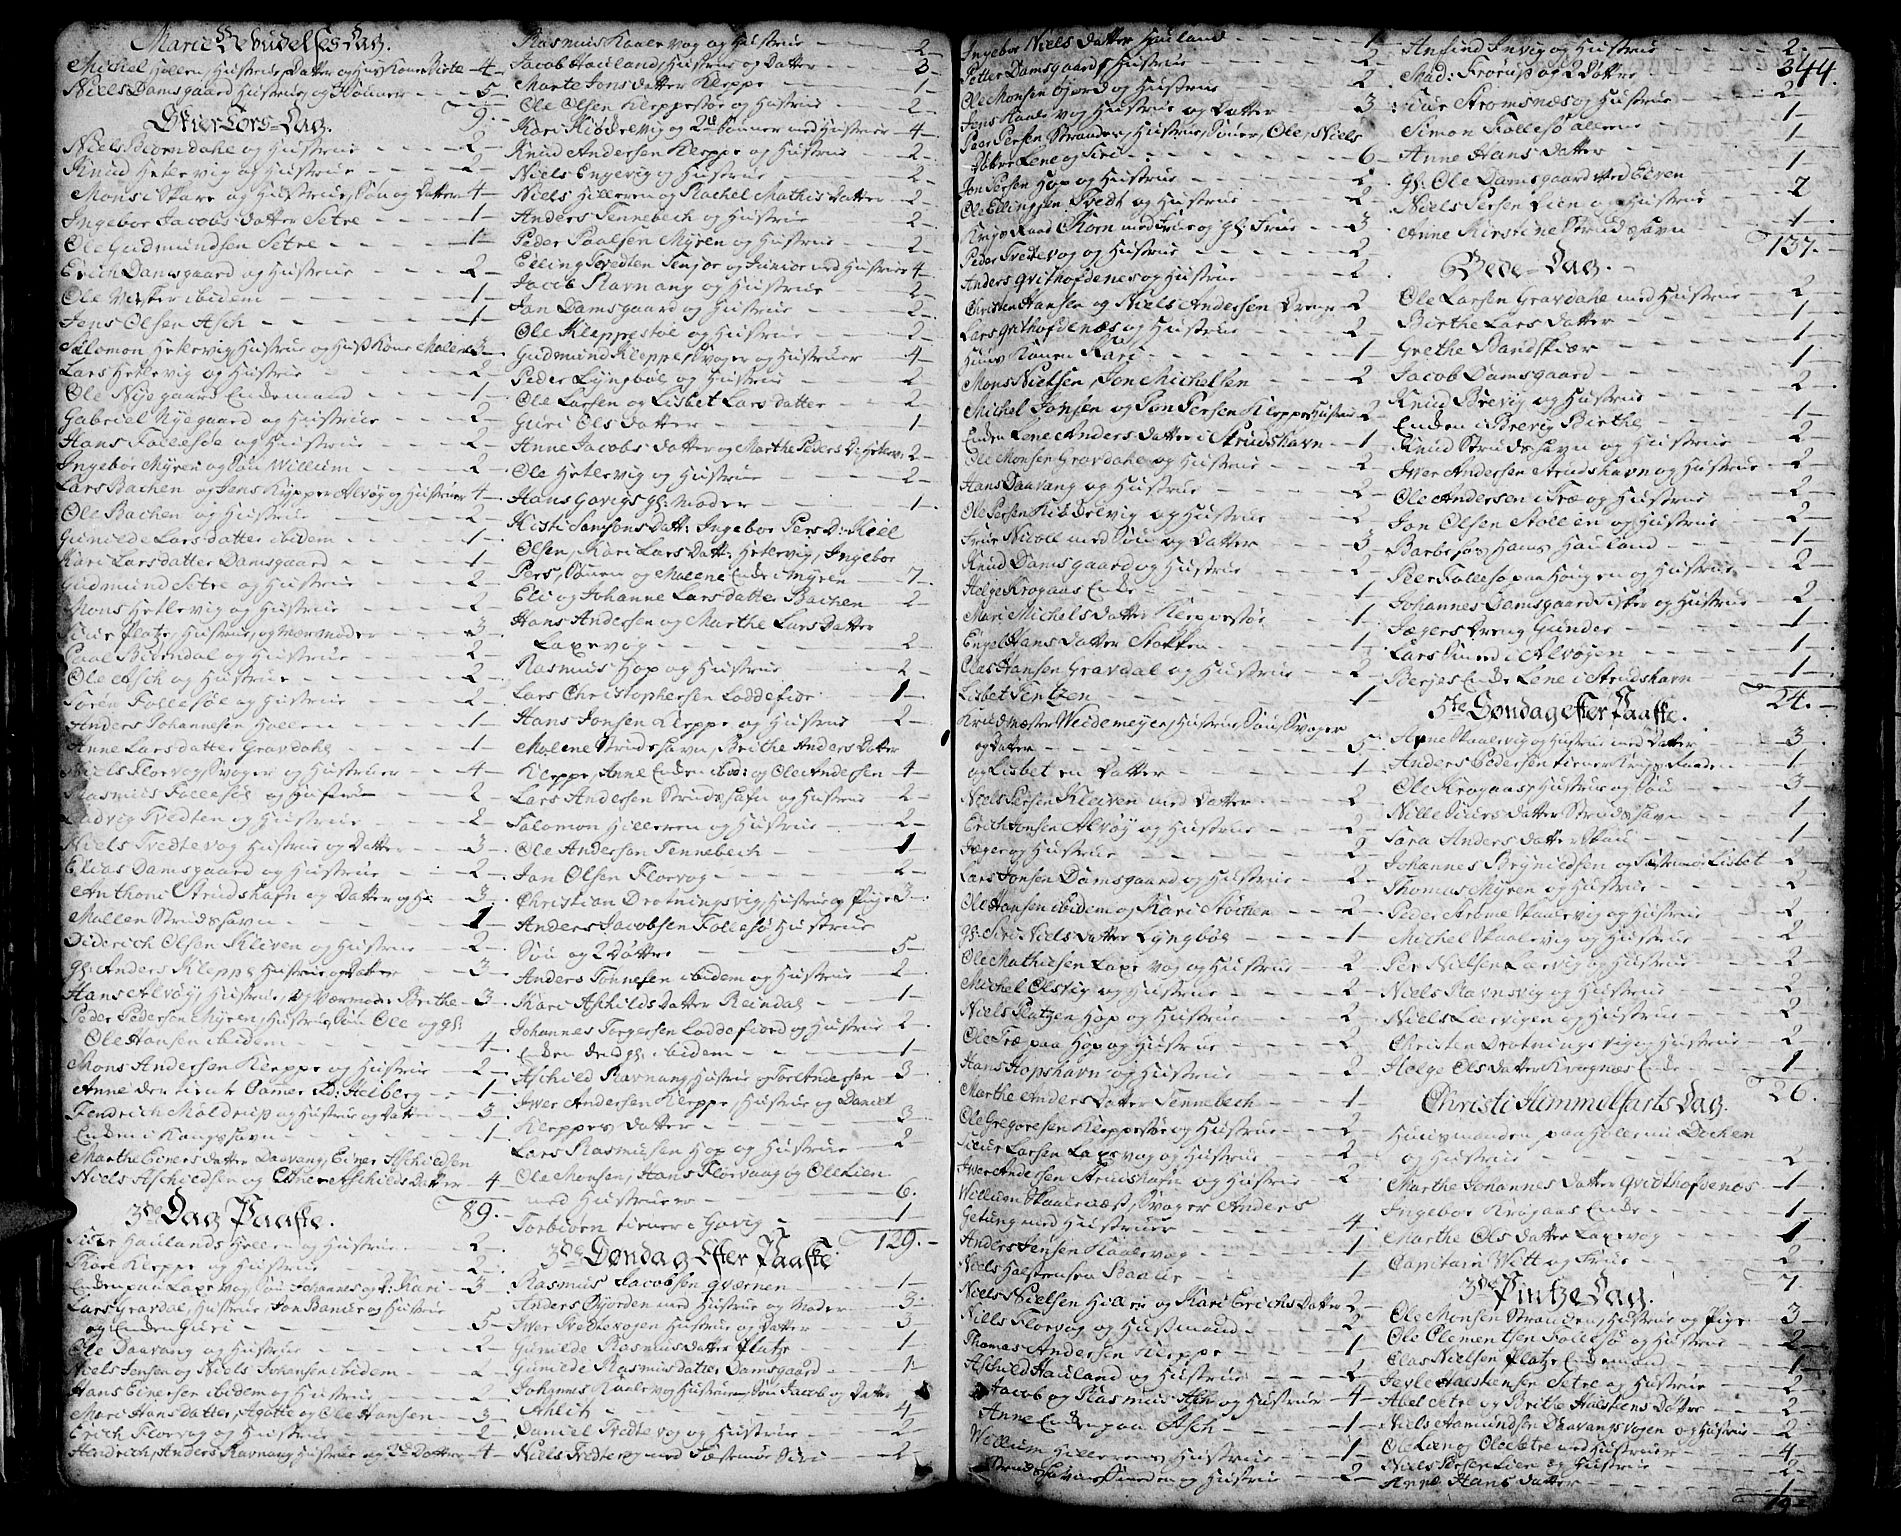 Marie Bebudelses Dag.
Michel Hilleren, Hustrue, Datter og Huuskone Birte - 4 -
Niels Damsgaard Hustrue, og Sønner - - 5 -
9.
Skier Tors-Dag.
Niels Biørndahl og Hustrue - - - 2 -
Knud Hetlevig og Hustrue - - - 2 -
Mons i Skare og Hustrue, Søn og Datter 4 -
Ingebor Jacobs Datter Setre - - - 1 -
Ole Gudmundsen Setre - - - 1 -
Damsgaard og Hustrue - - - 2 -
Ole ibidem - - - 1 -
Jens Olsen Asch - - - 1 -
Salomon Hetlevig, Hustrue og Huuskone Malene 3 -
Lars Hetlevig og Hustrue - - - 2
Ole Nyegaard Endemand - - - 1 -
Gabriel Nyegaard og Hustrue - - - 2
Hans Follesøe og Hustrue - - - 2
Ingebor Myren og Søn Willum - - - 2
Lars Bachen og Jens Kypper Alvøy og Hustruer 4 -
Ole Bachen og Hustrue - - - 2
Gunilde Larsdatter ibidem - - - 1 -
Kari Larsdatter Damsgaard - - - 1 -
Gudmund Setre og Hustrue - - - 2
Mons Hetlevig og Hustrue - - - 2 -
Platz, Hustrue, og Mormoder - - 3
Paal Biørndal og Hustrue - - - 2 -
Ole Asch og Hustrue - - - 2 -
Søren Follesøe og Hustrue - - - 2
Anders Johannesen - - - 1 -
Anne Larsdatter Gravdahl - - - 1 -
Niels Florvog, Svoger og Hustruer - - 4 -
Rasmus Follesøe og Hustrue - - 2 -
Ludvig Tvedten og Hustrue - - - 2
Niels Tvedtevog Hustrue og Datter - - 3 -
Elias Damsgaard og Hustrue - - 2 -
Anthoni Strudshafn og Datter - 3 -
Mallen Strudshavn - - - 1
Diderich Olsen Kleven og Hustrue - - 2 -
Gl: Anders Kleppe Hustrue og Datter - - 3 -
Hans Alvøy, Hustrue, og Værmoder Birthe - 3 -
Peder Pedersen Myren, Hustrue, Søn Ole og gl:
Ole Hansen ibidem - - - 4 -
Mons Andersen Kleppe og Hustrue - - 2 -
Anne der tiente - 1 -
Fendrich Moldrup og Hustrue og Datter - - 3
Enden i Kongshavn - - - 1 -
Marthe Einers Datter Daavang, Einer Aschildsen
Niels Aschildsen og Aschilds Datter - 4 -
89.
3de Dag Paaske.
Haulands og Hustrue - - 2 -
Kleppe og Hustrue - - - 2 -
Enden paa Laxevog, Søn Johannes og Kari - 3
Lars Gravdal, Hustrue Jon og Hustrue
og Enden Guri - - - 5 -
Ole Daavang og Hustrue - - - 2
Niels Jensen og Niels Johansen ibidem - - 2
Hans Einersen ibidem og Hustrue - - 2
Mari Hans datter, Agate og Ole Hansen - - 3 -
Erich Florvog og Hustrue - - - 2 -
Hendrich, Anders Ravnang Hustrue og 2de Døttre - 4 -
Rasmus Kaalevog og Hustrue - - 2 -
Jacob Hauland, Hustrue og Datter - - 3 -
Marte Jons datter Kleppe - - - 1 -
Ole Olsen Kleppestøe og Hustrue - - 2 -
Kari Kibbelvig og 2de Sønner med Hustruer 4 -
Knud Andersen Kleppe og Hustrue - - 2 -
Niels Engevig og Hustrue - - - 2 -
Niels Hilleren og Rachel Mathis datter - 2 -
Anders Tennebech og Hustrue - - 2
Peder Paalsen Myren og Hustrue - - 2 -
Elling Tvedten Senior og Junior med Hustruer 4 -
Jacob Ravnang og Hustrue - - - 2 -
Jan Damsgaard og Hustrue - - - 2 -
Ole Kleppestøe og Hustrue - - - 2
Gudmund Kleppe, Svoger og Hustruer - - 4 -
Peder Lyngbøe og Hustrue - - - 2 -
Ole Larsen og Lisbet Lars datter - - 2 -
Guri Ols datter - - - 1
Anne Jacobs datter og Marthe Peders D: Hetlevi 2 -
Ole Hetlevig og Hustrue - - - 2 -
Hans Govigs gl: Moder - - - 1
Kisti Samsons Datt: Ingebor Pers D: Kiell
Olsen, Kari Lars Datt: Hetlevig, Ingebor
Pers, Sønen og Malene Ende i Myren - 7 -
Eli og Johanne Lars datter Bachen - 2 -
Hans Andersen og Marthe Lars Datter
Laxevog - - - 2 -
Rasmus Hop og Hustrue - - - 2 -
Lars Christophersen Laddefiord - 1 -
Hans Jonsen Kleppe og Hustrue - 2 -
Malene Strudshavn, Brithe Anders Datter
Kleppe, Anne Enden ibid: og Ole Andersen - 4 -
Lars Andersen Strudshafn og Hustrue - 2 -
Salomon Hilleren og Hustrue - - 2 -
Ole Andersen Tennebech - - - 1
Jan Olsen Florvog - - - 2 -
Christian Drotningsvig, Hustrue og Pige 3 -
Anders Jacobsen Follesø Hustrue
Søn og 2 Døttre - - - 5 -
Anders Tønnesen ibidem og Hustrue - 2
Kari Aschilds Datter Reindal - - 1 -
Johannes Torgersen Laddefiord og Hustrue 2 -
Enden ibidem - - - 1 -
Aschild Ravnang Hustrue og Tore Andersen 3
Iver Andersen Kleppe, Hustrue og Daniel
Kleppes Datter - - - 3 -
Lars Rasmusen Hop og Hustrue - - 2 -
Ole Monsen, Hans Florvaag og Ole Lien
med Hustruer - - - 6.
Torbiørn tiener i Govig - - 1 -
129. -
3de Søndag Efter Paaske
Rasmus Jacobsen Qværnen - - - 1 -
Anders Øyorden med Hustrue og Moder - - 3 -
Iver Tvedtevogen Hustrue og Datter - - 3 -
Gunilde Rasmus datter Platz - - 1 -
Gunilde Rasmus datter Damsgaard - - 1 -
Johannes Kaalevog Hustrue Søn Jacob og Datter
Ahlit - - - 4 -
Daniel Tvedtevog og Hustrue - - 2 -
Niels Tvedtevog med Fæstemø Siri - - 2 -
Ingebor Niels datter Hauland - - 1 -
Petter Damsgaard og Hustrue - - 2 -
Ole Monsen Giord og Hustrue - - 2
Jens Kaalevog Hustrue og Datter - - 3
Peer Persen Stranden, Hustrue, Søner, Ole, Niels
Døttre Lene og Siri - - - 6 -
Jon Persen Hop og Hustrue - - - 2
Ole Ellingsen Tvedt og Hustrue - - 2 -
Krigs Raad Korn med Frue og gl: Frue - 3
Peder Tvetevog og Hustrue - - - 2
Anders Qvithofdenes og Hustrue - - 2 -
Christen Hansen og Niels Andersen Drenge - 2
Lars Qvithofdenæs og Hustrue - - 2
Huus Konen Kari - - - 1 -
Mons Nielsen, Jon Michelsen - - 2
Michel Jonsen og Jon Persen Kleppe Hustrue 2 -
Enden Lene Anders datter i Strudshavn - 1
Ole Monsen Gravdahl og Hustrue - - 2
Hans Daavang og Hustrue - - - 2 -
Ole Persen Kibbelvig og Hustrue - - 2
Frue Nicoll med Søn og Datter - - 3
Knud Damsgaard og Hustrue - - 2
Helge Krogaas Ende - - - 1
Mari Michels datter Kleppestøe - 1 -
Engel Hans datter Støkken - - 1 -
Clas Hansen Gravdal og Hustrue - 2 -
Lisbet Jentzen - - - 1 -
Krudtmester Weidemeyer, Hustrue, Søn, Svoger
og datter - - - 5 -
og Lisbet en Datter - - - 1 -
Niels Persen Kleiven med Datter - - 2
Erich Jensen Alvøy og Hustrue - - 2
Jæger og Hustrue - - - 2
Lars Jonsen Damsgaard og Hustrue - - 2 -
Ole Hansen ibidem og Kari Støcken - - 2 -
Gl: Siri Niels datter Lyngbøe - - 1 -
Ole Mathiesen Laxevog og Hustrue - - 2 -
Michel Olsvig og Hustrue - - - 2 -
Niels Platzen Hop og Hustrue - - 2 -
Ole Træ paa Hop og Hustrue - - 2 -
Hans Hopshavn og Hustrue - - - 2
Marthe Anders datter Tennebech - - 1 -
Ole Gregoresen Kleppestøe og Hustrue - 2 -
Siur Larsen Laxevog og Hustrue - - 2
Iver Andersen Strudshafn og Hustrue - - 2
Willum Skaalenæset, Svoger Anders
Getung med Hustruer - - - 4 -
Anders Jensen Kaalevog - - - 1 -
Niels Halstensen Baaler - - - 1 -
Niels Nielsen og Kari Erichs Datter 2 -
Nills Florvog og Husmand - - - 2
Thomas Andersen Kleppe - - - 1
Aschild Hauland og Hustrue - - 2 -
Jacob og Rasmus Asch og Hustruer - 4 -
Anne Enden paa Asch - - - 1 -
Willum Hilleren og Hustrue - - 1
Strudshavns Smeden og Hustrue - - 2 -
Anfind Juvig og Hustrue - - 2 -
Mad: Frørup og 2 Døttre - - 3
344.
Siur Strømsnæs og Hustrue - - 2 -
Simon Follesø allene - - - 1 -
Anne Hans datter - - - 1 -
Gl: Ole Damsgaard ved Elven - - 1 -
Niels Persen Lien og Hustrue - - 2
Anne Kirstine Strudshavn - - 1 -
137.
Bede-Dag.
Ole Larsen Gravdahl med Hustrue - - 2 -
Birthe Lars datter - - - 1 -
Grethe Sandskiær - - - 1 -
Jacob Damsgaard - - - 1
Knud Brevig og Hustrue - - - 2 -
Enden i Brevig Birthe - - - 1 -
Knud Strudshavn og Hustrue - - 2 -
Iver Andersen Strudshavn og Hustrue - - 2 -
Ole Andersen i Træ og Hustrue - - 2 -
Jon Olsen Stollen og Hustrue - - 2 -
Hans Hauland - - - 1 -
Peer Follesø paa Haugen og Hustrue - - 2 -
Johannes Damsgaard Fisker og Hustrue - - 2 -
Jægers Dreng Gunder - - - 1 -
Lars Smed i Alvøyen - - - 1 -
Berjes Ende Lene i Strudshavn - - 1 -
24. -
5te Søndag efter Paaske.
Arne Skaalevig og Hustrue med Datter - - 3
Anders Pedersen tiener Krigs Raaden - - 1 -
Ole Krogaas, Hustrue og Søn - - 3 -
Nille Siurs datter Strudshavn - - 1
Sara Anders datter Skau - - 1
Johannes Brynildsen og Fæstemø Lisbet 2 -
Thomas Myren og Hustrue - - - 2 -
Peder Strøme Skaalevig og Hustrue - - 2
Michel Skaalevig og Hustrue - - 2
Per Nielsen Loevig og Hustrue - - 2 -
Niels Ravnsvig og Hustrue - - 2
Niels Loevigen og Hustrue - - 2 -
Christen Drotningsvig og Hustrue - 2 -
Helge Ols datter Krognæs Ende - - 1 -
26.
Christi Himmelfarts Dag.
Huusmanden paa Holleren
og Hustrue - - - 2
Marthe Johannes datter Qvithofdenes - 1 -
Ingebor Krogaas Ende - - - 1 -
Marthe Ols datter Laxevog - - 1
Capitain Witt og Frue - - - 2
7
3de Pintze Dag.
Ole Monsen Stranden, Hustrue og Pige - 3 -
Ole Clementsen Follesø og Hustrue - - 2 -
Clas Nielsen Platz Endemand - - 1 -
Halstensen Setre og Hustrue - - 2 -
Abel Setre og Brithe Halstens Datter - - 2 -
Niels Aamundsen Daavangsvogen og Hustrue - 2 -
Ole Lien og Ole Setre med Hustruer - - 4 -
Niels Persen Lien og Hustrue - - 2 -
Anne Hans datter - - - 1 -
19